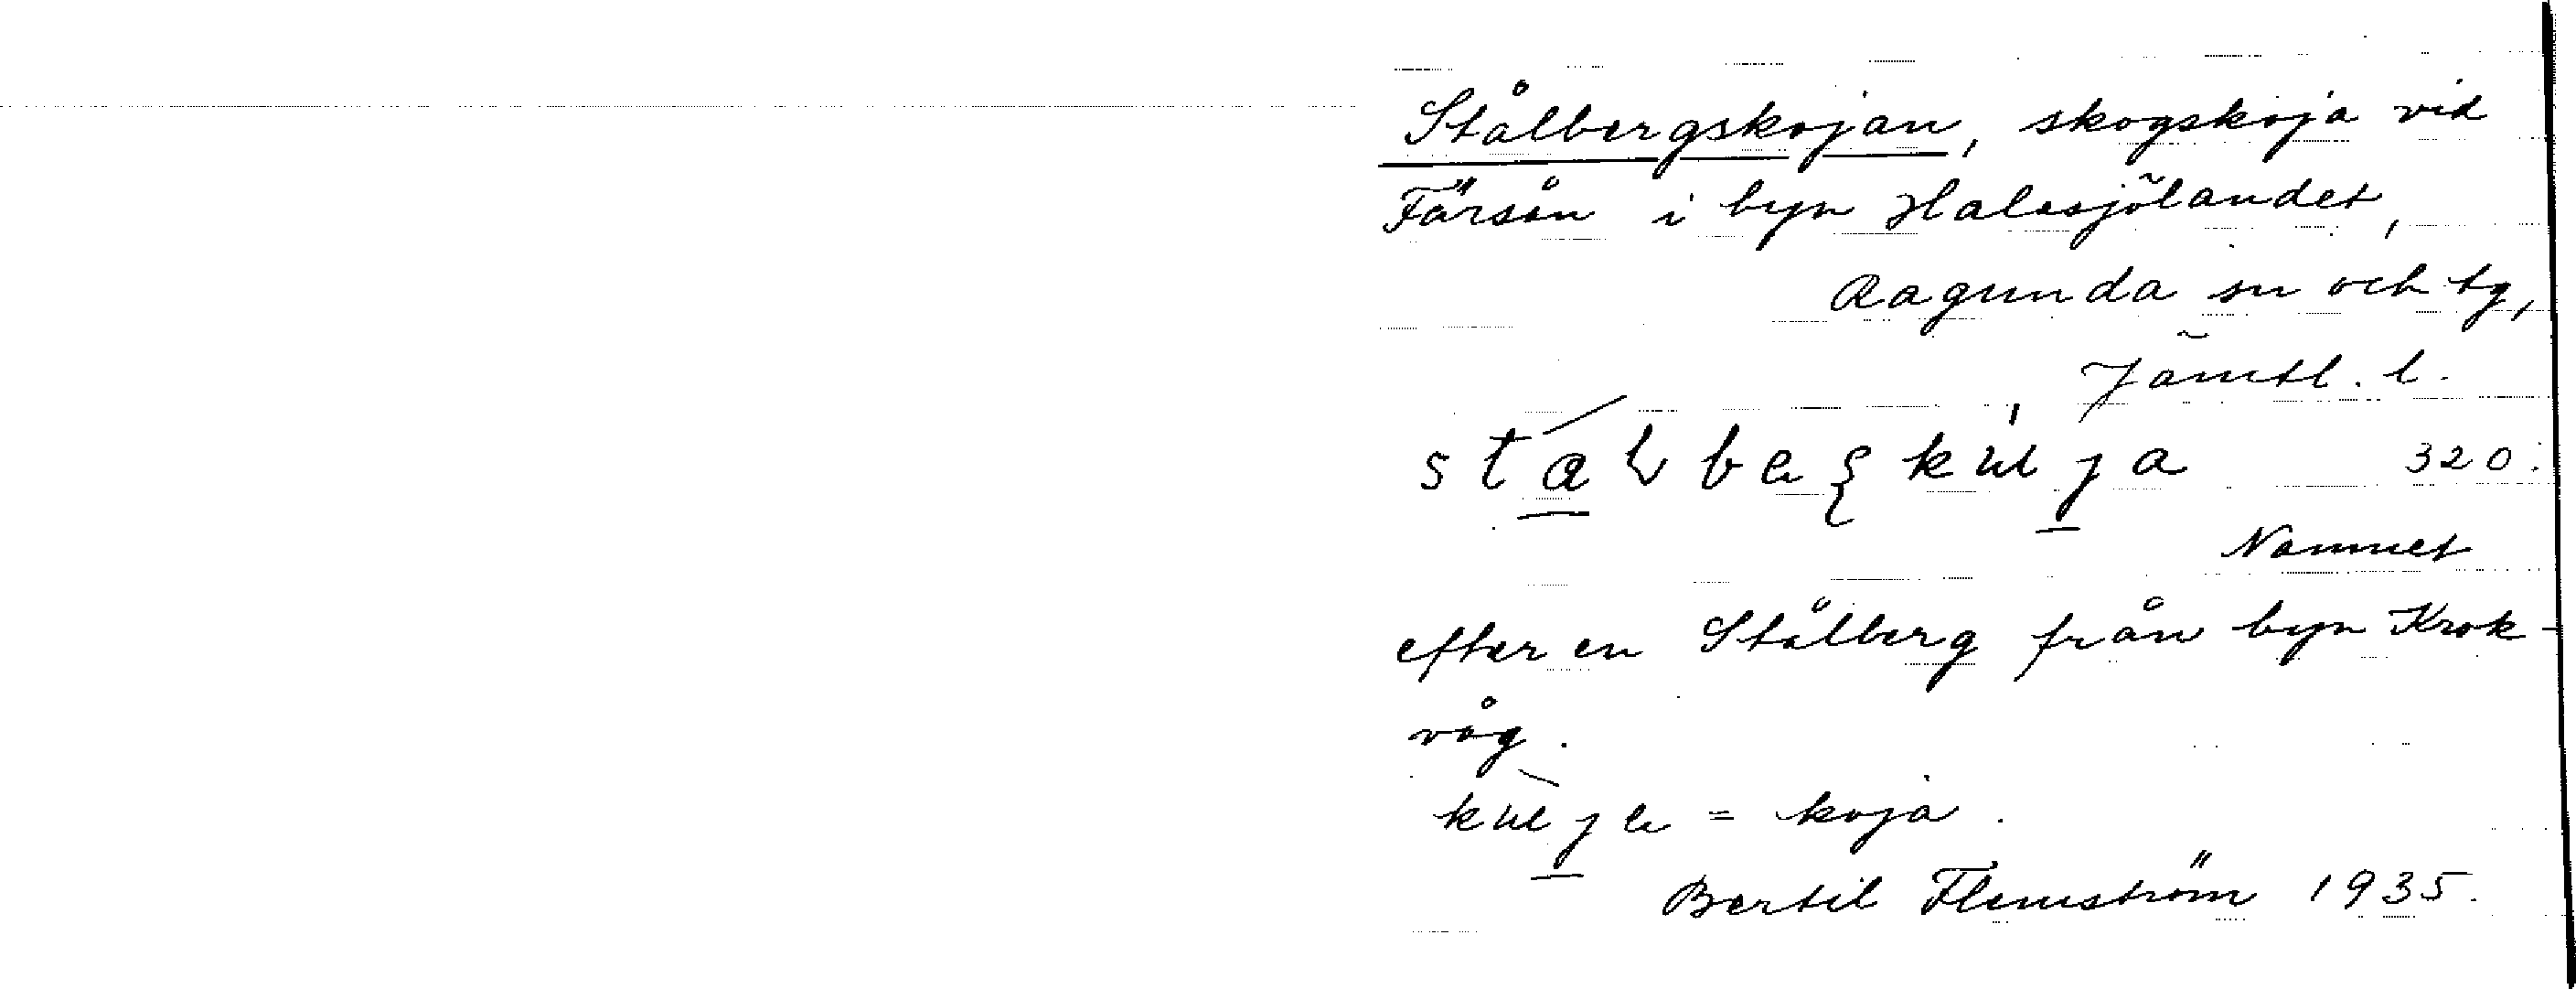 Stålbergskojan, skogskoja vid
Färsån i byn Halasjölandet,
Ragunda sn och tg,
Jämtl. l.
320:
Namnet
efter en Stålberg från byn Krok-
våg.
= koja.
Bertil Flemström 1935.